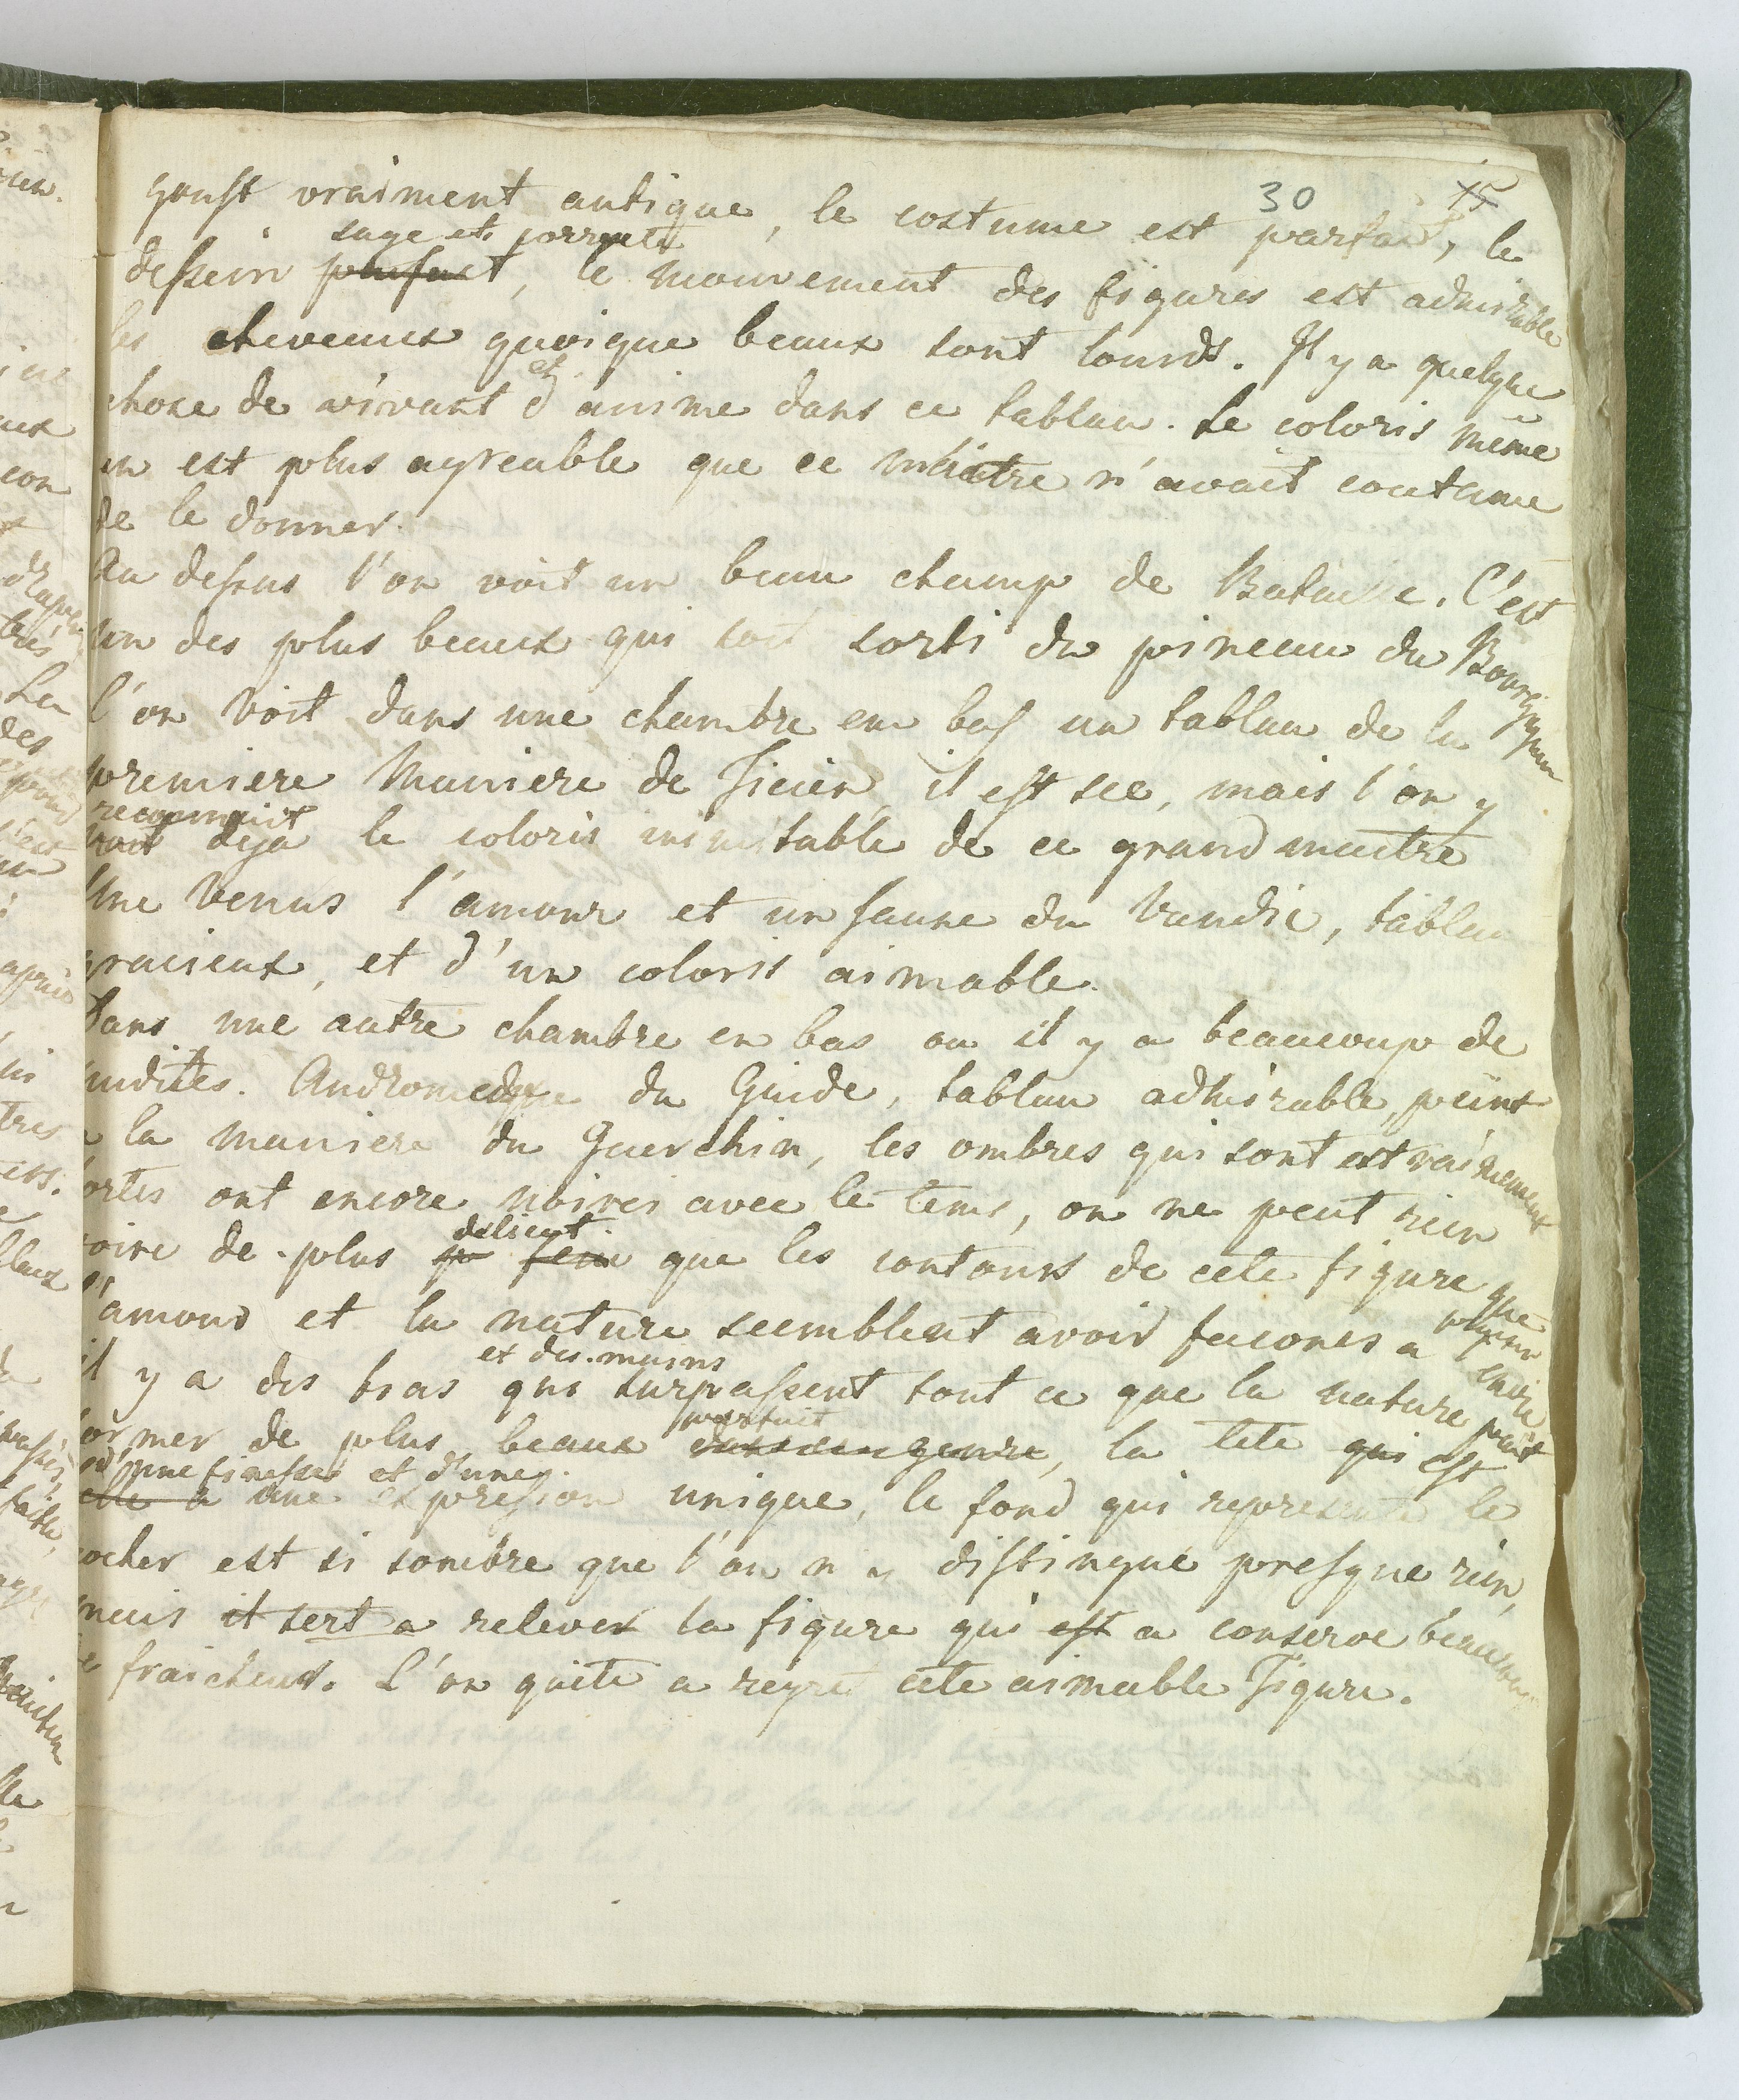 30 15
goust vraiment antique, le costume est parfait, le
sage et correcte
dessein parfaict, le mouvement des figures est admirable
les cheveux quoique beaux sont lourds. Il y a quelque
et
chose de vivant d'anime dans ce tablau. Le coloris même
en est plus agreable que ce maitre n'avait coutume
de le donner.
Au dessus l'on voit un beau champ de Bataille. C'est
un des plus beaux qui soit sorti du pinceau du Bourgignon
l'on voit dans une chambre en bas un tablau de la
premiere maniere de Ticien, il est sec, mais l'on y
reconnait
voit deja le coloris inimitable de ce grand maitre
Une Venus l'amour et un faune du Vandic, tablau
gracieux, et d'un coloris aimable.
Dans une autre chambre en bas ou il y a beaucoup de
nudites. Andromede du Guide, tablau admirable, peint
a la maniere du Guerchin, les ombres qui sont extraimement
fortes ont encore noirci avec le tems, on ne peut rien
delicat
voire de plus que les contours de cete figure que
l'amour et la nature seemblent avoir faconés a plaisir
et des mains
il y a des bras qui surpassent tout ce que la nature
former de plus beaux dans son genre, la tete qui est
d'une finesse et d'une
elle a une expression unique, le fond qui represente le
rocher est si sombre que l'on n y distingue presque rien,
mais il sert a relever la figure qui est a conserve beaucoup
de fraicheur. L'on quite a regre cete aimable Figure.